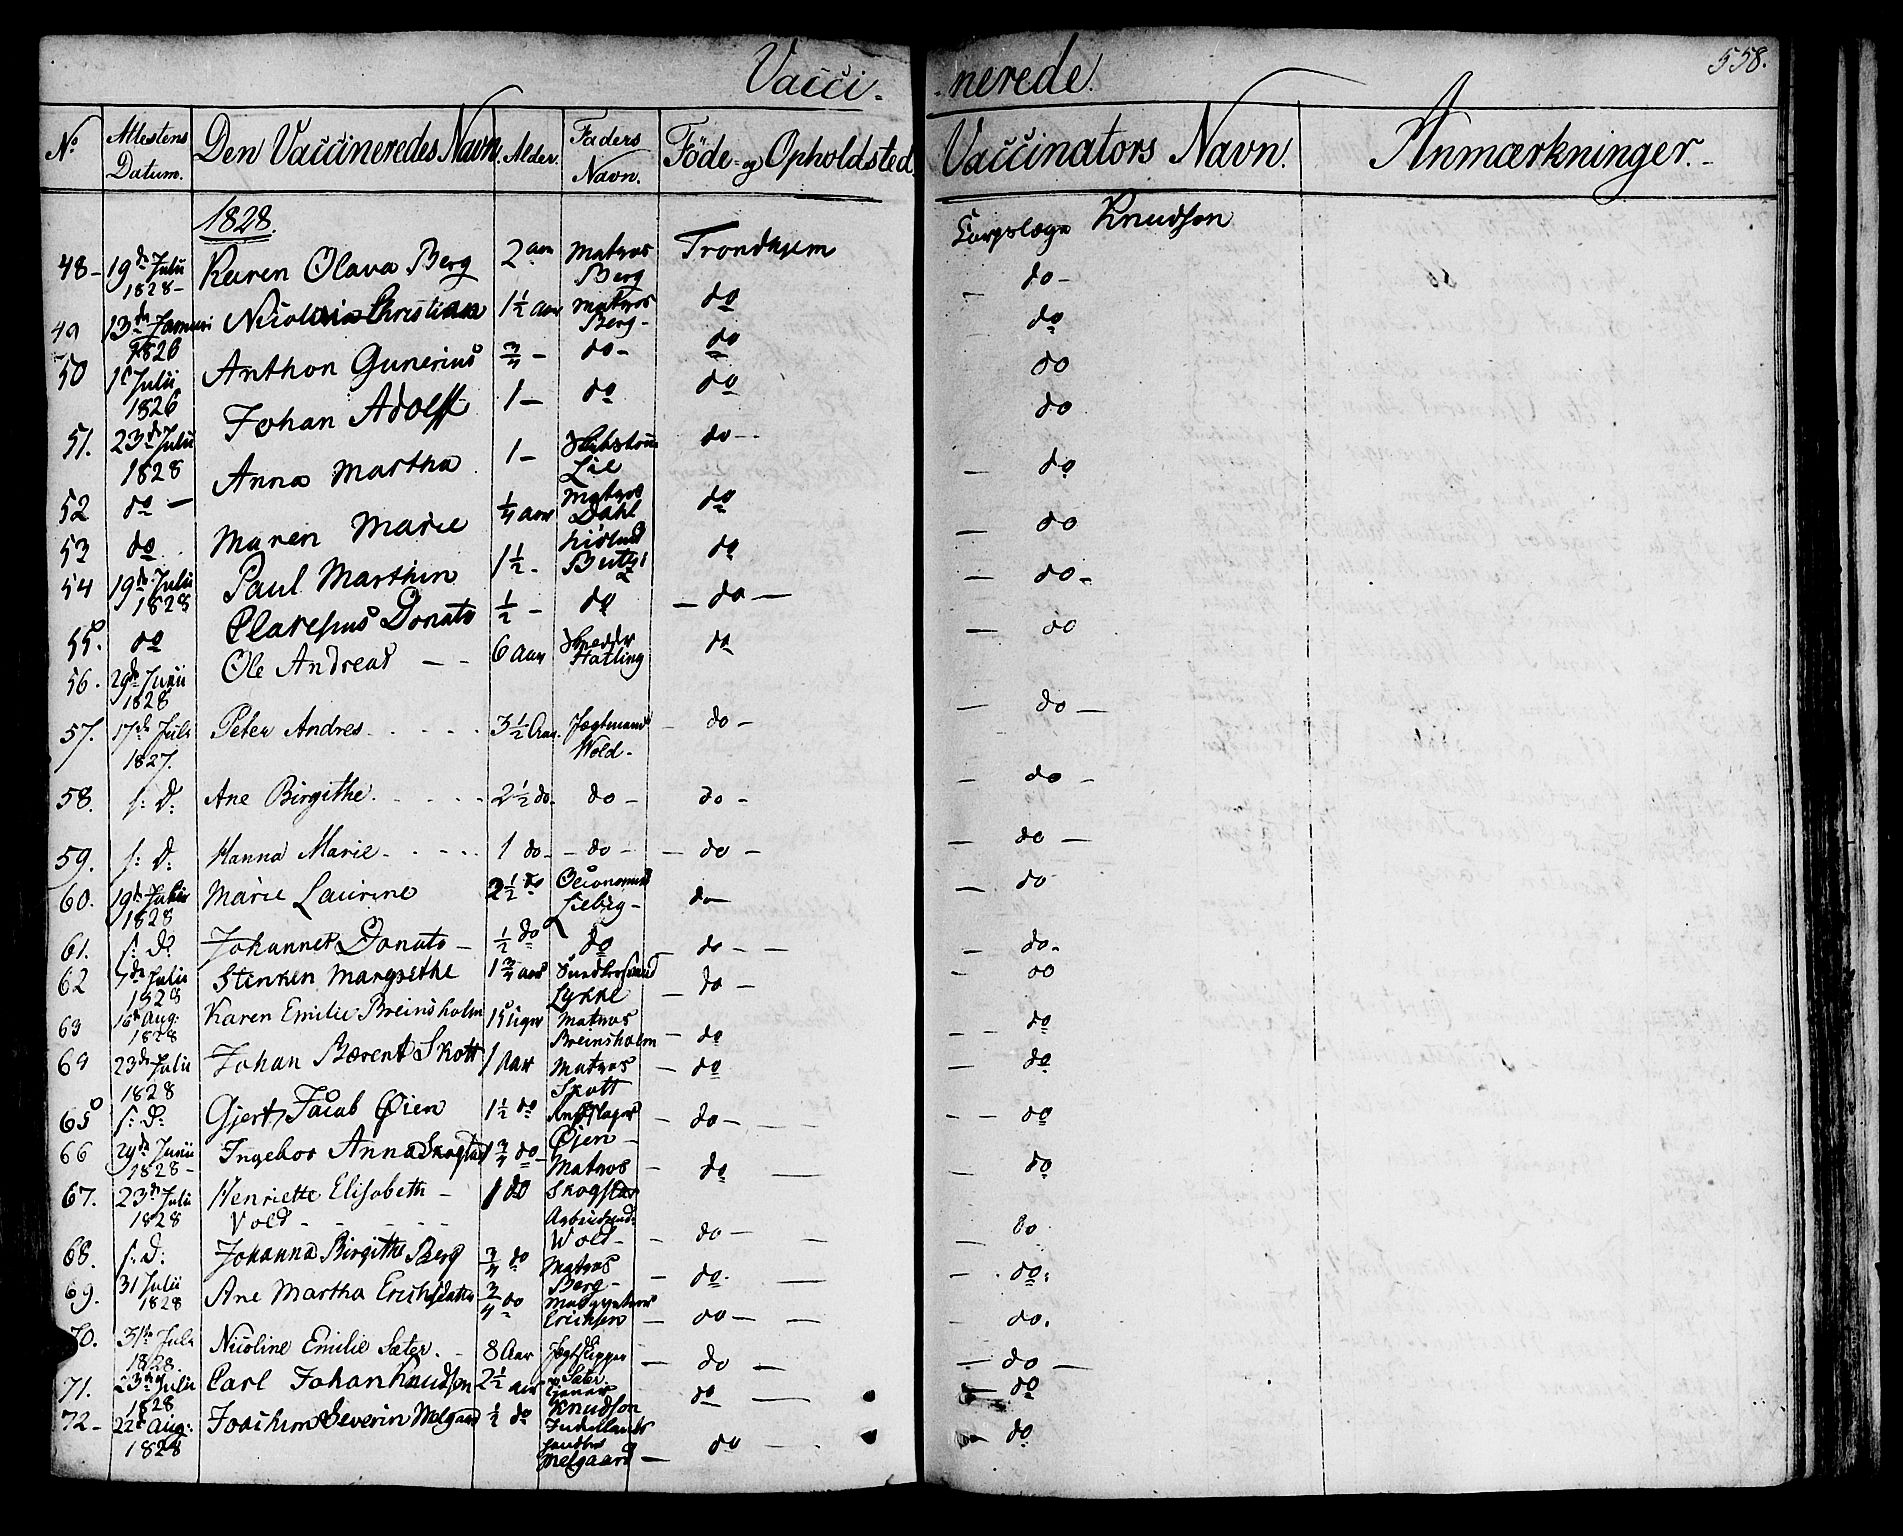 Vacci-
-nerede.
558.
No. Attestens Datum. Den Vaccineredes Navn. Alder. Faders Navn. Föde- og Opholdsted. Vaccinators Navn. Anmærkninger.
1828.
48- 19de Julii 1828- Karen Olava Berg 2 aar Matros Berg Trondhjem Knudson
49 13de Januari 1826 Christian 1½ aar Matros Berg- do - do -
50 1e Julii 1826 Anthon Gunerius ¾ - do - do do
51. 23de Julii 1828 Johan Adolff 1 - do do do
52 do - Anna Martha 1 - Lie do - do
53 do Maren Marie ¼ aar Matros Dahl do - do
54 19de Julii 1828 Paul Marthin 1½ - do - do
55. do Donato ½ - do - do - - do -
56. 29de Junii 1828 Ole Andreas - - 6 Aar Hatling do - do
57. 17de Juli 1827. Peter Andres 3½ Aar Wold - - do - - do -
58. s: D: Ane Birgithe. 2½ do - do - do - - do -
59. s: D: Hanna Marie. 1 do - - do - - do - - do -
60. 19de 1828 Marie Laurine 2½ do do - - do
61. s: D: Johannes Donato - ½ do do - do - - - do -
62 Julii 1828 Margrethe 1¾ aar Lykke - do - - do
63 16de Aug: 1828 Karen Emilie Breinsholm Matros Breinsholm - do - - do
64 23de Julii 1828 Johan Bærent Skott 1 Aar Matros Skott - do - do
65 s: D: Gjert Jacob Øien 1½ do Øien - - do - - - do
66 29de Junii 1828 - Ingebor Anna Skogstad 1¾ do - Matros Skogstad - do - - do
67. 23de Julii 1828 Henriette Elisabeth - Vold - 1 do Wold - - do - - - do
68. s: D: Johanna Birgithe Berg ¾ do Matros Berg - - do - - - do:
69. 31 Julii 1828 Ane Martha ¾ do Erichsen - do - - - do.
70. 31te Juli 1828. Nicoline Emilie Sæter. - 8 Aar Sæter - do - - do -
71. 23de Julii 1828 Carl Johan Knudson 2½ aar Knudson do - - do
72 - 22de Aug: 1828 Joachim Severin Melgaard ½ do Melgaard - do - - do